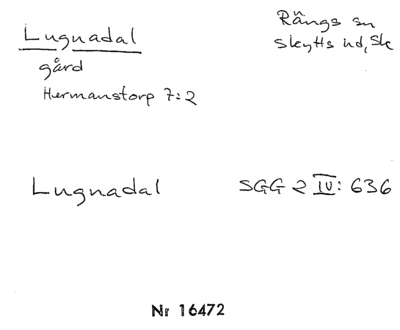 Lugnadal
Rängs sn
Skytts hd, Sk
gård
Hermanstorp 7:2
Lugnadal SGG 2 IV: 636
Nr 16472